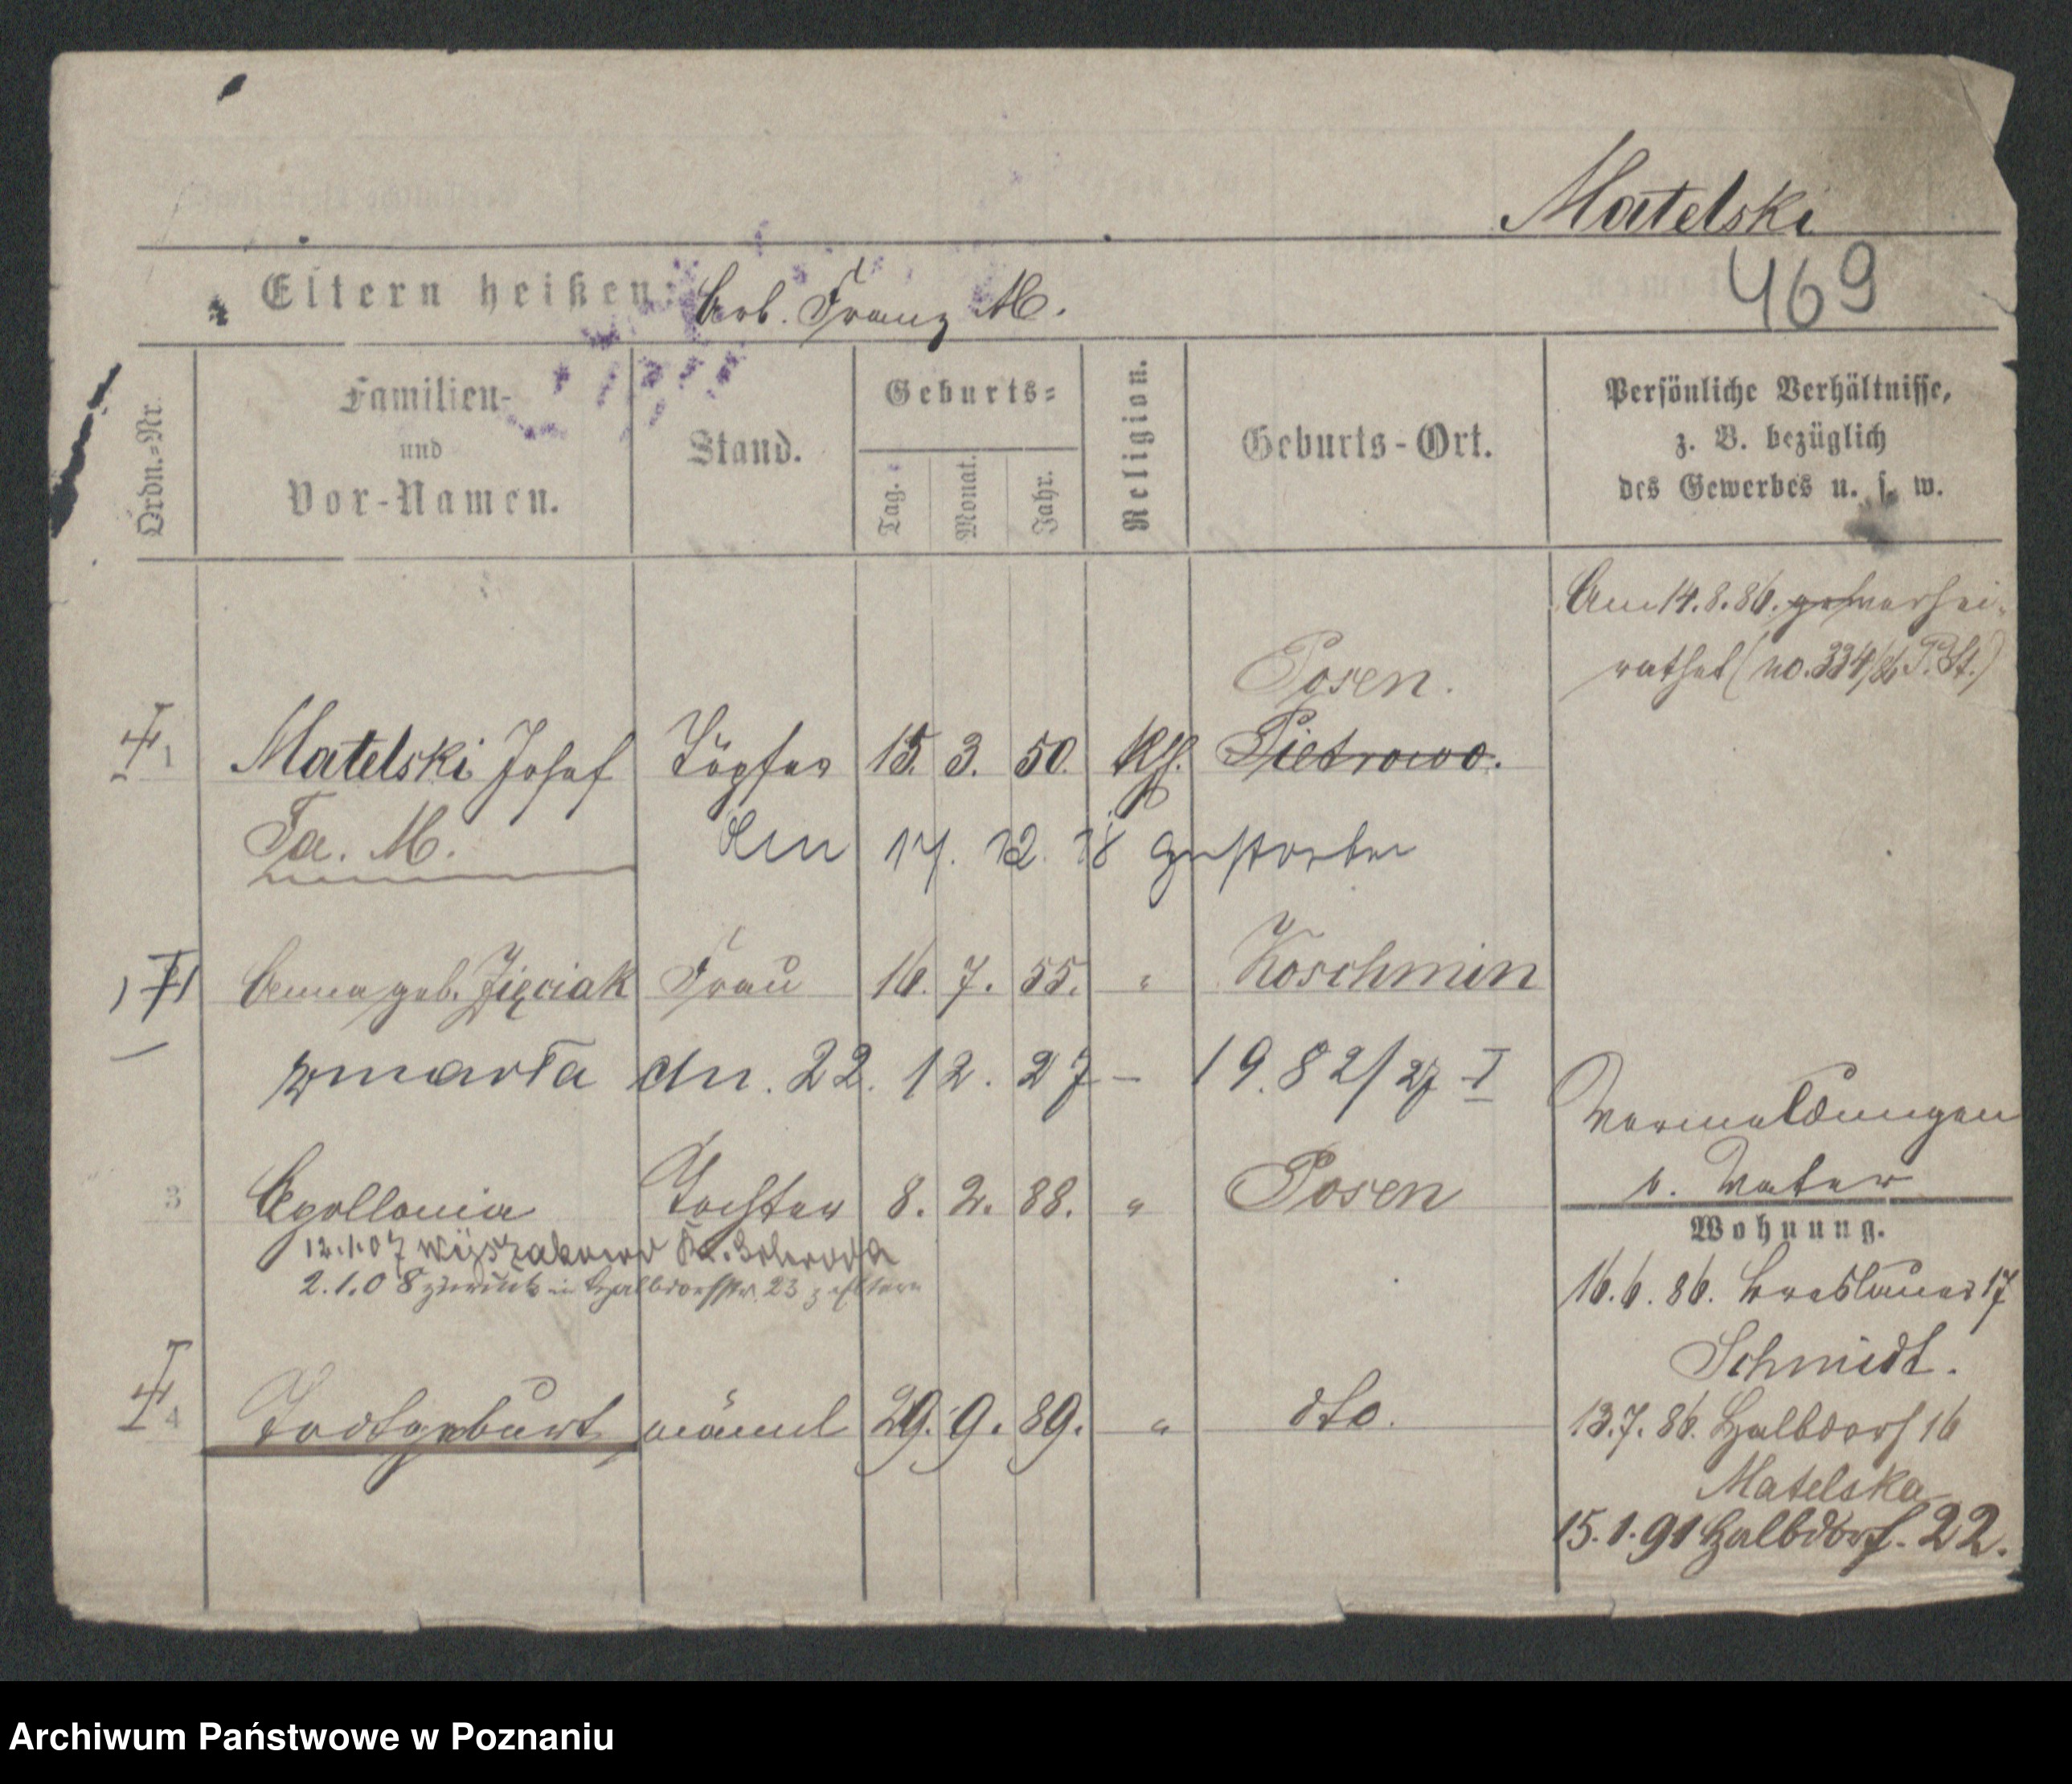 Matelski
469
Eltern heißen: Arb. Franz M.
Ordn.=Nr.
Familien-
und
Vor-Namen.
Stand.
Geburts=
Tag.
Monat.
Jahr.
Religion.
Geburts-Ort.
Persönliche Verhältnisse,
z. B. bezüglich
des Gewerbes u. s. w.
Am 14.8.86. verhei-
rathet (no. 334/86 P. St.)
Posen.
1 Matelski Josef Töpfer 15. 3. 50. Kth. Pietrowo.
Fa. M. 17. 12. gestorben
Anna geb. Zięciak Frau 16. 7. 55. " Koschmin
zmarła dn. 22. 12. 27 – 19.82/27 I
Vermeldungen
b. Vater
3 Apollonia Tochter 8. 2. 88. " Posen
12.1.07 Kr. Schroda
2.1.08 zurück in Halbdorfstr. 23 z Eltern
Wohnung.
16.6.86. Breslauer 17
Schmidt.
4 Todtgeburt männl 29. 9. 89. " dto.
13.7.86. Halbdorf 16
Matelska
15.1.91 Halbdorf. 22.
Archiwum Państwowe w Poznaniu